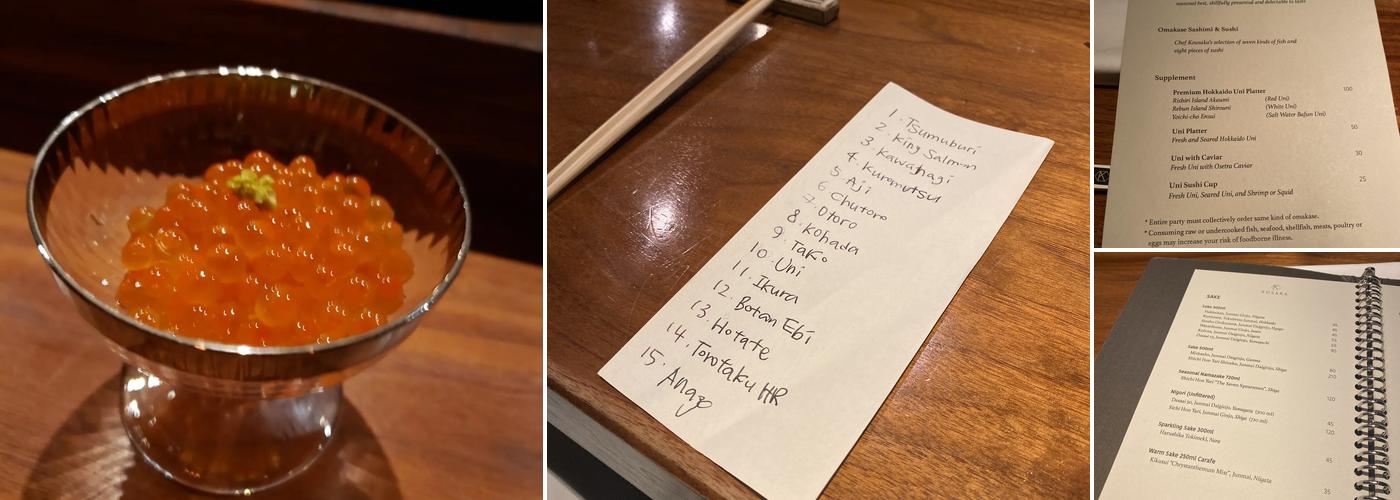 1. Tsumuburi
2. King Salmon
3. Kawahagi
4. Kuromutsu
5. Aji
6. Chutoro
7. Otoro
8. Kohada
9. Tako
10. Uni
11. Ikura
12. Botan Ebi
13. Hotate
14. Torotaku HR
15. Anago
seasonal best, skillfully presented and delectable to tastes
Omakase Sashimi & Sushi
Chef Kousaka's selection of seven kinds of fish and
eight pieces of sushi
Supplement
Premium Hokkaido Uni Platter 100
Rishiri Island Akauni (Red Uni)
Rebun Island Shirouni (White Uni)
Yoichi-cho Ensui (Salt Water Bafun Uni)
Uni Platter 50
Fresh and Seared Hokkaido Uni
Uni with Caviar 30
Fresh Uni with Osetra Caviar
Uni Sushi Cup 25
Fresh Uni, Seared Uni, and Shrimp or Squid
* Entire party must collectively order same kind of omakase.
* Consuming raw or undercooked fish, seafood, shellfish, meats, poultry or
eggs may increase your risk of foodborne illness.
KOSAKA
SAKE
Sake 300ml
Sake 500ml
Seasonal Namazake 720ml
Shichi Hon Yari "The Seven Spearsmen", Shiga 120
Nigori (Unfiltered)
Dassai 50, Junmai Daiginjo, Yamaguchi (300 ml) 45
Shichi Hon Yari, Junmai Ginjo, Shiga (720 ml) 120
Sparkling Sake 300ml
Harushika Tokimeki, Nara 45
Warm Sake 250ml Carafe
Kikusui "Chrysanthemum Mist", Junmai, Niigata 35